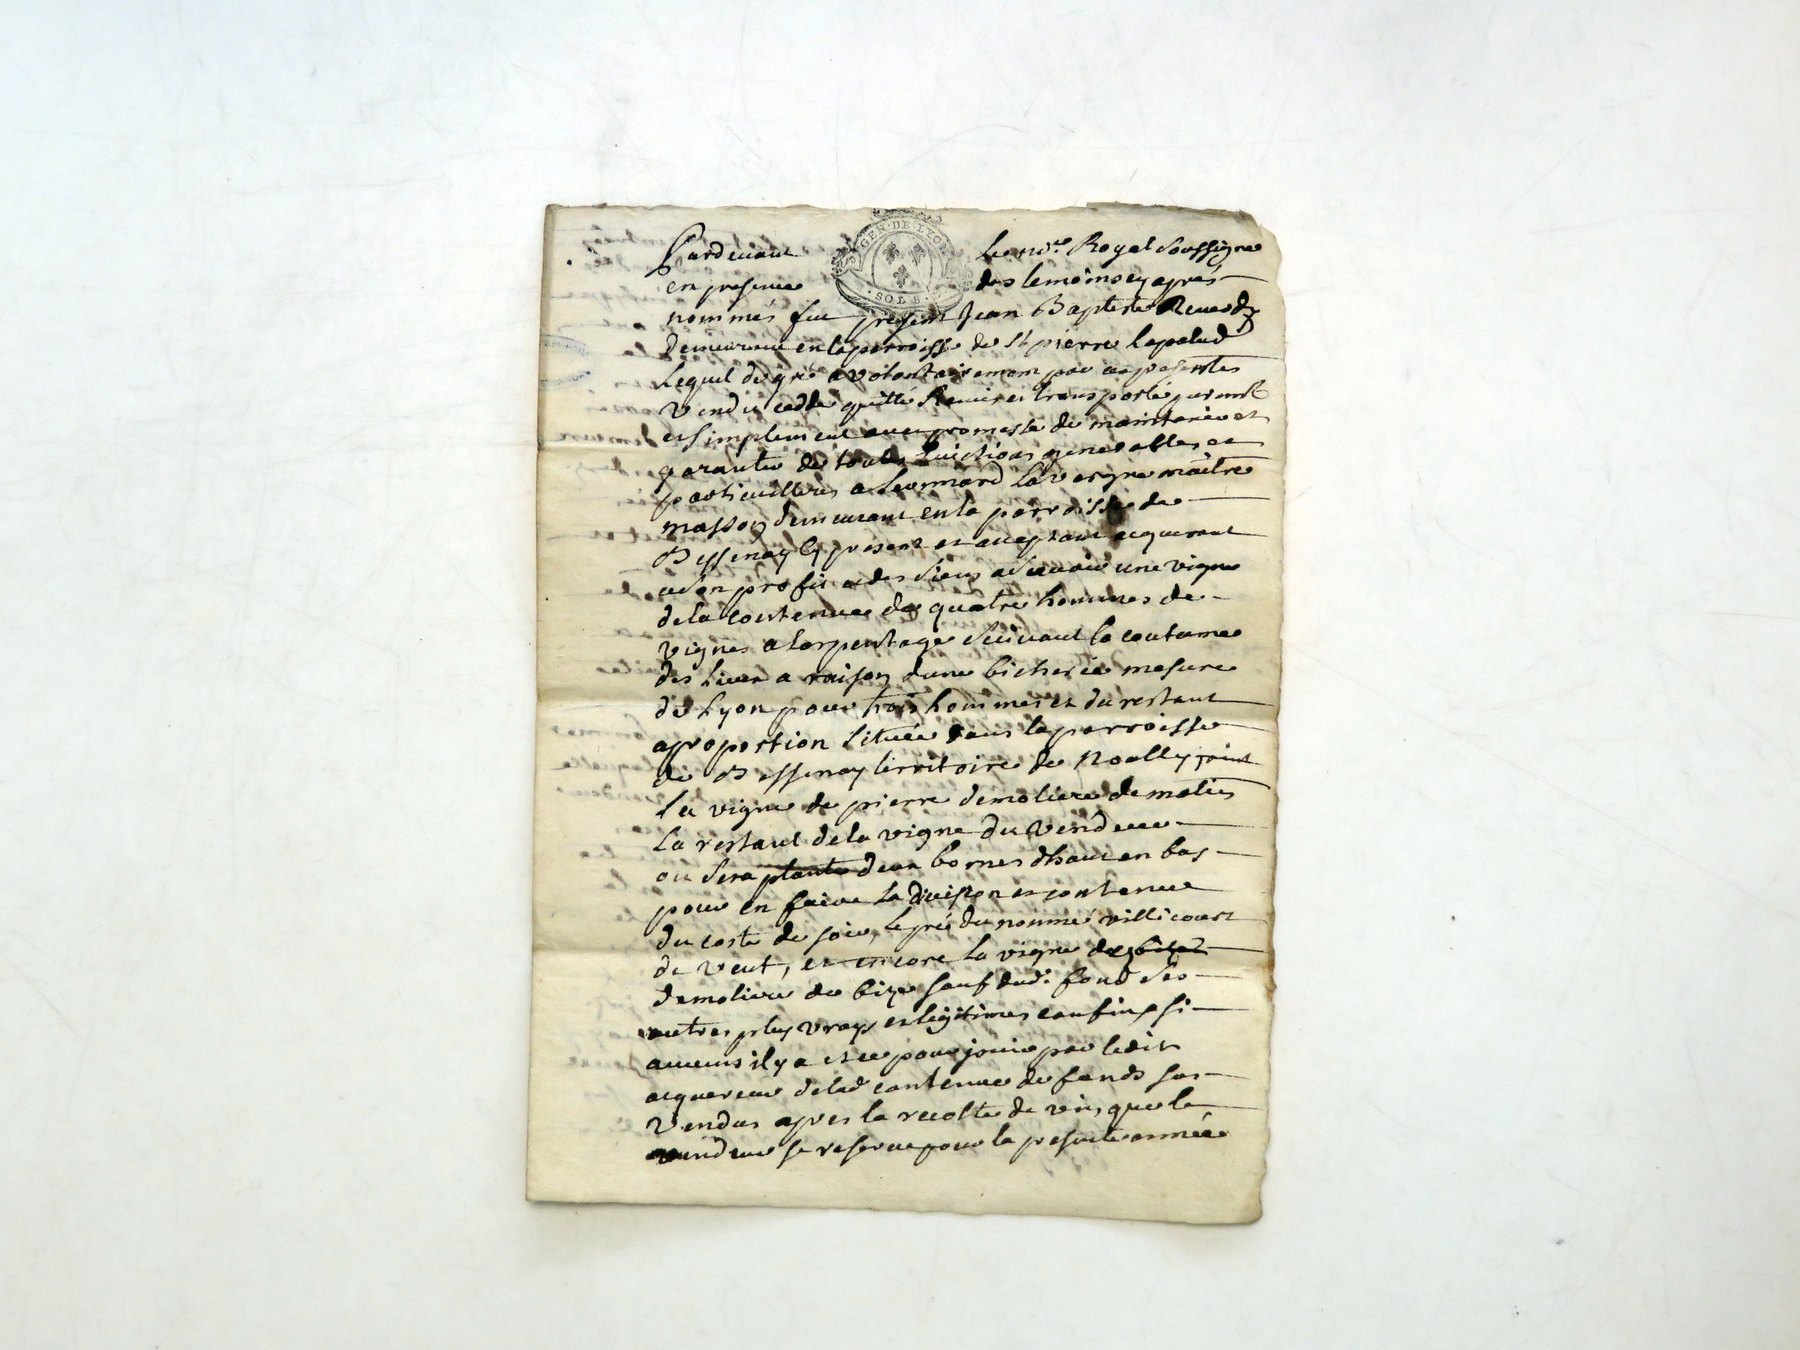 GEN·DE·LYON
SOLS
Pardevant le no.re Royal soussigne
en presence des temoins cy après
nommés fut present Jean Baptiste
demeurant en la parroisse de St pierre lapalud
Lequel de gré a volontairement par ces presentes
vendu cedde quitté Remis et transporté puremt
et simplement avec promesse de maintenir et
garantir de toutes Euictions generalles et
particuilleres a Leonnard Lavergne maître
masson demeurant en la parroisse de
Bessenay Cy présent et acceptant acquerant
a son profit et des siens a sçavoir une vigne
de la contenue de quatre hommes de
vignes a larpentage suivant la coutume
des lieux a raison dune bicherée mesure
de Lyon pour trois hommes et du restant
a proportion située dans la parroisse
de Bessenay territoire de Noally joint
La vigne de pierre demoliere de matin
La restant de la vigne du vendeur
ou sera planté deux bornes dhaut en bas
pour en faire la division et contenue
du costé de soir, le pré du nommé villicourt
de vent, et encore la vigne
demoliere de bize sauf dud. fond ses
autres plus vrays et legitimes confins si
aucuns il y a et ce pour jouir par ledit
acquereur de lad contenue de fonds sus
vendus apres la recolte de vin, que le
vendeur se reserve pour la presente année